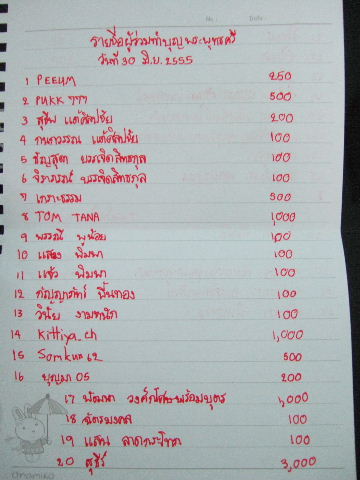 No. Date.
รายชื่อผู้ร่วมทำบุญพระพุทธศรี
วันที่ 30 มิ.ย. 2555
1 PEEUM 250
2 PUKK ๆๆๆ 500
3 สุชีพ แต้ศิลปชัย 200
4 กนกวรรณ แต้ศิลปชัย 100
5 ธัญสุตา บรรเจิดสิทธกุล 100
6 จิราภรณ์ บรรเจิดสิทธกุล 100
7 เกราะธรรม 500
8 TOM TANA 1,000
9 พรรณี พูน้อย 100
10 แสอง พิมพา 100
11 แช่ว พิมพา 100
12 กัญญาภัทร์ ปิ่นทอง 100
13 วินัย งามถนัด 100
14 Kittiya_ch 1,000
15 Somkun62 500
16 บุญมา 05 200
17 พัฒนา พร้อมบุตร 1,000
18 ฉัตรมงคล 100
19 แสน ลาดกระโทก 100
20 สุธีร์ 3,000
onamiko